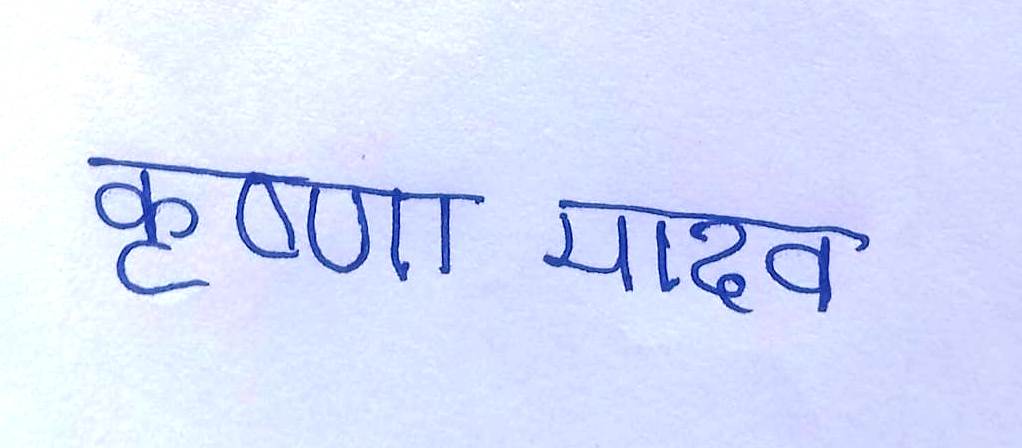 कृष्णा यादव